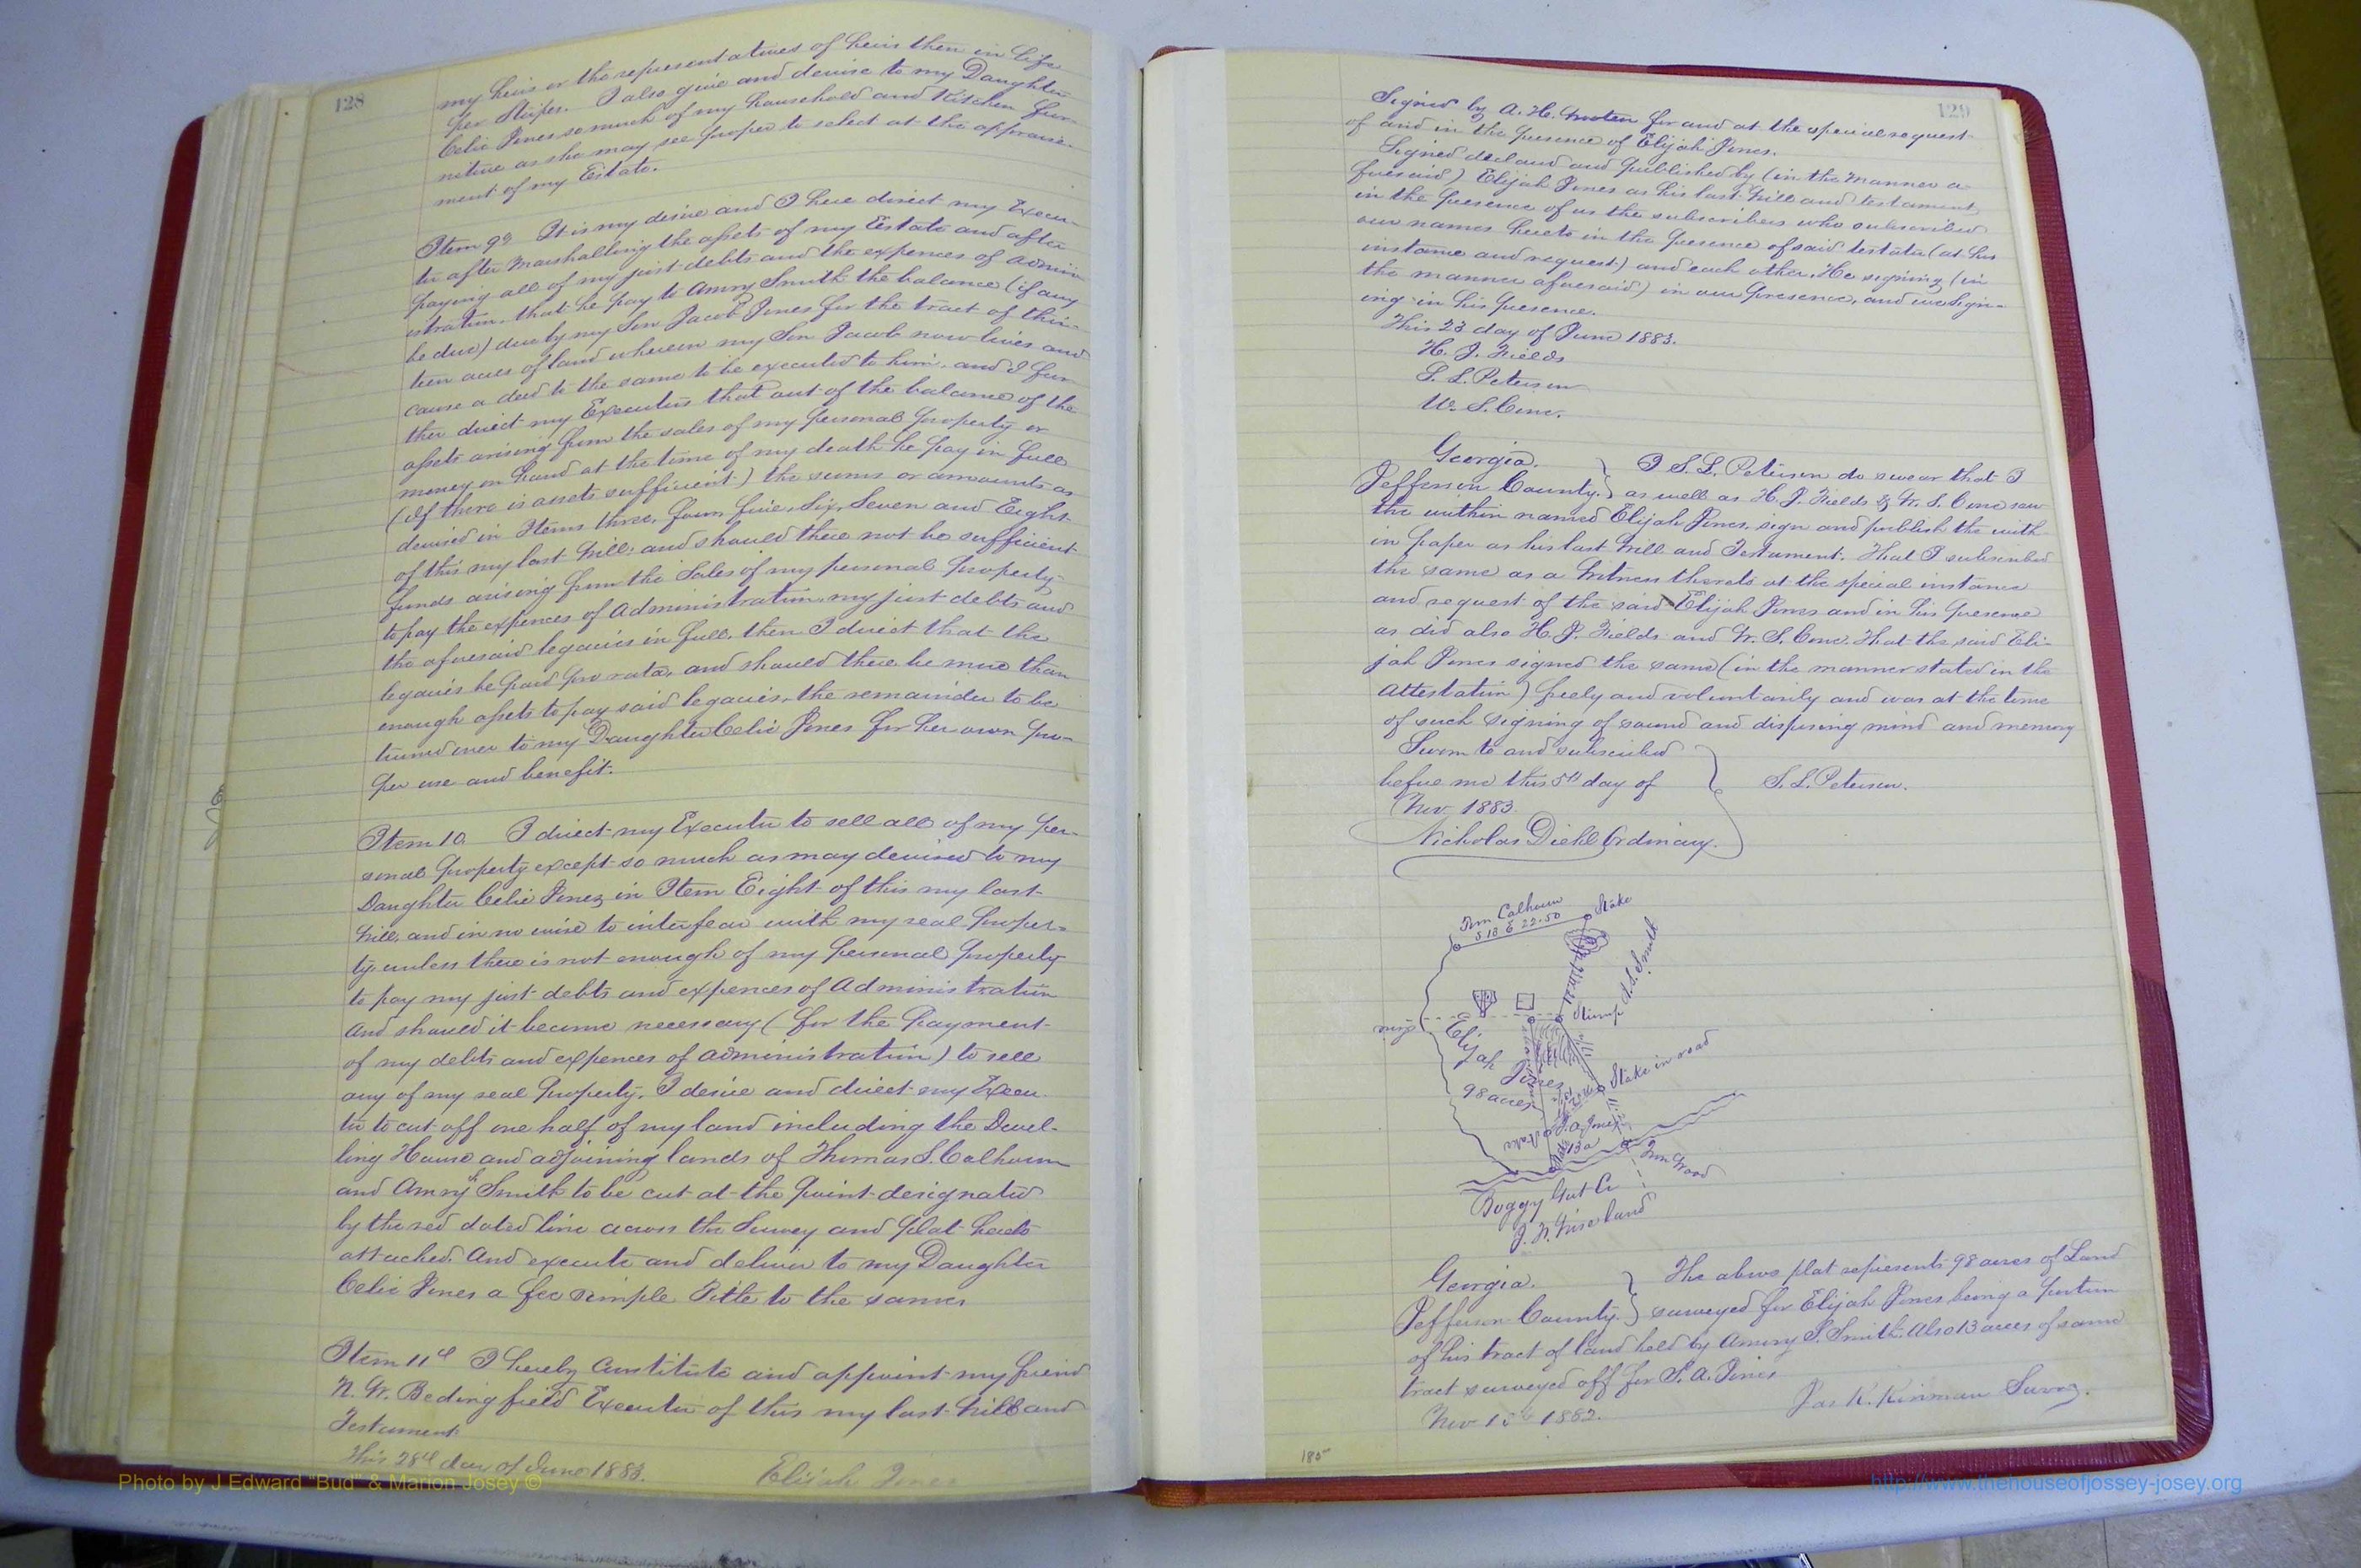 128
my heirs or the representatives of heirs then in life
per Stirpes. I also give and devise to my Daughter
Celie Jones so much of my household and Kitchen fur-
niture as she may see proper to select at the appraise-
ment of my Estate.
Item 9th It is my desire and I here direct my Execu-
tor after Marshalling the assets of my Estate and after
paying all of my just debts and the expences of admin-
istration, that he pay to Amry Smith the balance (if any
be due) due by my Son Jacob Jones for the tract of thir-
teen acres of land wherein my Son Jacob now lives and
cause a deed to the same to be executed to him, and I fur-
ther direct my Executor that out of the balance of the
assets arising from the sales of my personal property or
money on hand at the time of my death he pay in full
(if there is assets sufficient) the sums or amounts as
devised in Items three, four, five, Six, Seven and Eight
of this my last Will; and should there not be sufficient
funds arising from the Sales of my personal property
to pay the expences of Administration, my just debts and
the aforesaid legacies in full, then I direct that the
legacies be paid pro rata, and should there be more than
enough assets to pay said legacies, the remainder to be
turned over to my Daughter Celie Jones for her own pro-
per use and benefit.
Item 10 I direct my Executor to sell all of my per-
sonal property except so much as may devised to my
Daughter Celie Jones in Item Eight of this my last
Will, and in no wise to interfear with my real proper-
ty, unless there is not enough of my personal property
to pay my just debts and expences of Administration
And should it become necessary (for the payment
of my debts and expences of administration) to sell
any of my real property, I desire and direct my Execu-
tor to cut off one half of my land including the Dwel-
ling House and adjoining lands of Thomas S. Calhoun
and Amry S Smith to be cut at the point designated
by the red doted line across the Survey and plat hereto
attached. And execute and deliver to my Daughter
Celie Jones a fee simple Title to the same
Item 11th I hereby Constitute and appoint my friend
N. W. Bedingfield Executor of this my last Will and
Testament
This 28th day of June 1883. Elijah Jones
129
Signed by A. H. for and at the special request
of and in the presence of Elijah Jones.
Signed declared and published by (in the manner a-
foresaid) Elijah Jones as his last Will and testament
in the presence of us the subscribers who subscribed
our names hereto in the presence of said testator (at his
instance and request) and each other. He signing (in
the manner aforesaid) in our presence, and we sign-
ing in his presence.
This 23 day of June 1883.
H. J. Fields
S. L. Peterson
W. S. Cone.
Georgia. } I S. L. Peterson do swear that I
Jefferson County. } as well as H. J. Fields & W. S. Cone saw
the within named Elijah Jones, sign and publish the with-
in paper as his last Will and Testament. That I subscribed
the same as a Witness thereto at the special instance
and request of the said Elijah Jones and in his presence
as did also H. J. Fields and W. S. Cone. That the said Eli-
jah Jones signed the same (in the manner stated in the
Attestation) freely and voluntarily and was at the time
of such signing of sound and disposing mind and memory
Sworn to and subscribed
before me this 5th day of } S. L. Peterson.
Nov 1883
Nicholas Diehl Ordinary.
Tom Calhoun
S 13 E 22.50
Stake
A. S. Smith
Stump
Elijah
Jones
98 acres
Stake in road
Stake
S. A. Jones
13 a
Iron Wood
Boggy Gut Cr
J. W. land
Georgia. } The above plat represents 98 acres of Land
Jefferson County. } surveyed for Elijah Jones being a portion
of his tract of land held by Amry S. Smith. Also 13 acres of same
tract surveyed off for S. A. Jones
Nov 15th 1882. Jas. K. Kinman Survy.
185
Photo by J Edward "Bud" & Marion Josey ©
http://www.thehouseofjossey-josey.org